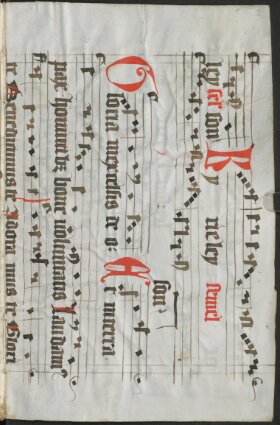 ley ter son Ky rieley semel
son
Gloria in excelsis de o Et in terra
pax hominibꝫ bone voluntatis Laudam
te Benedicimus te Adora mus te Glori